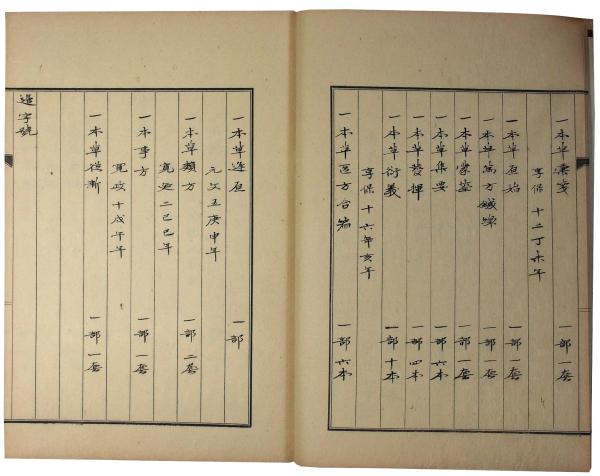 一本草彙箋 一部一套
享保十二丁未年
一本草原始 一部一套
一本草萬方鍼線 一部一套
一本草蒙筌 一部一套
一本草集要 一部六本
一本草發揮 一部四本
一本草衍義 一部十本
享保十六辛亥年
一本草医方合編 一部六本
一本草逢原 一部
元文五庚申年
一本草類方 一部二套
寛延二己巳年
一本事方 一部一套
寛政十戊午年
一本草從新 一部一套
字號